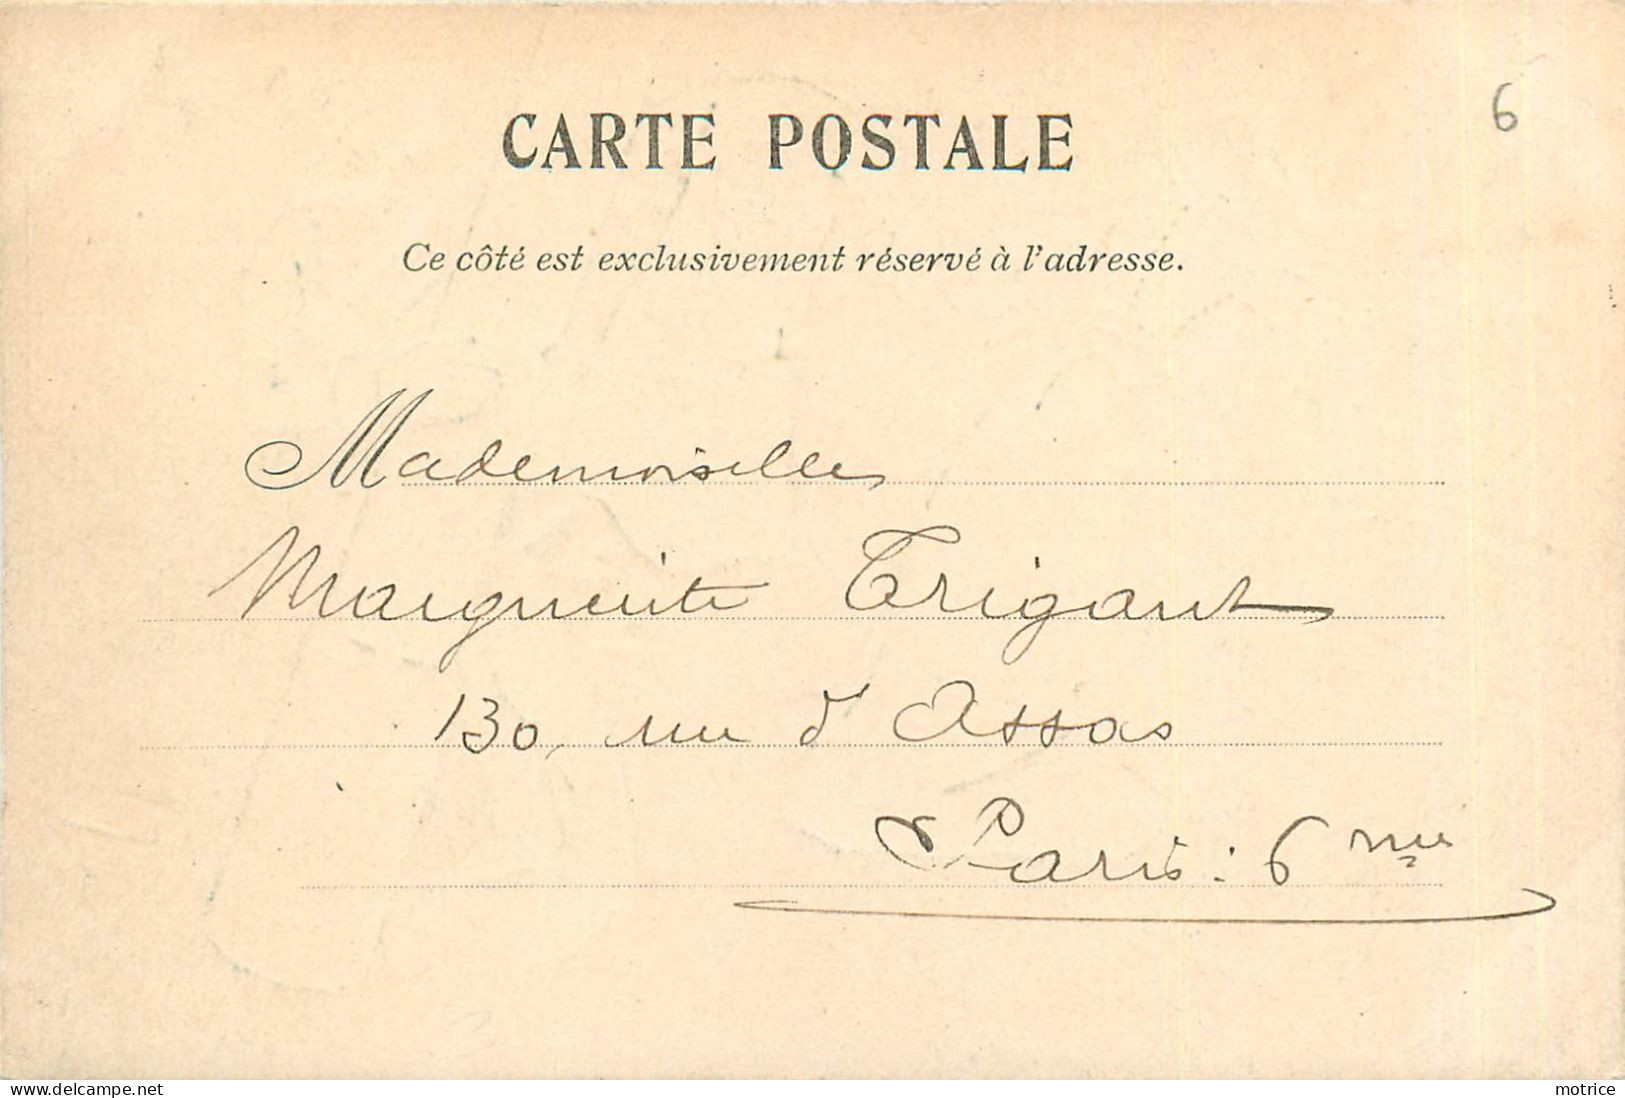 6
CARTE POSTALE
Ce côté est exclusivement réservé à l'adresse.
Mademoiselle
Marguerite Trigant
130, rue d'Assas
Paris : 6me
www.delcampe.net
motrice